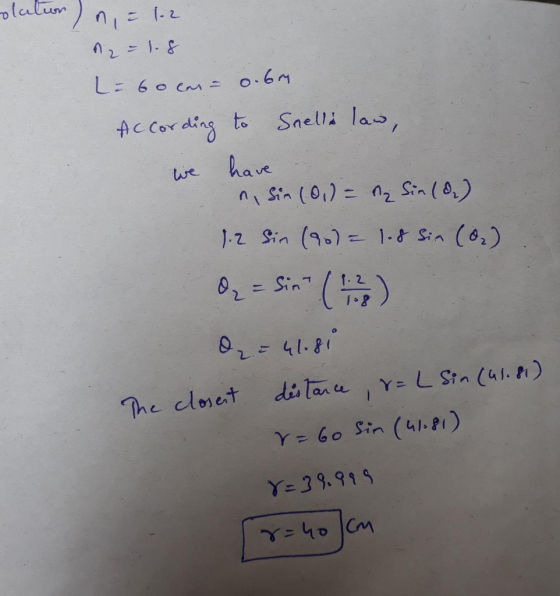 olution) n₁ = 1.2
n₂ = 1.8
L = 60 cm = 0.6m
According to Snell's law,
we have
n₁ Sin (θ₁) = n₂ Sin (θ₂)
1.2 Sin (90) = 1.8 Sin (θ₂)
θ₂ = Sin⁻¹ (1.2/1.8)
θ₂ = 41.81°
The closest distance, r = L Sin (41.81)
r = 60 Sin (41.81)
r = 39.999
r = 40 cm